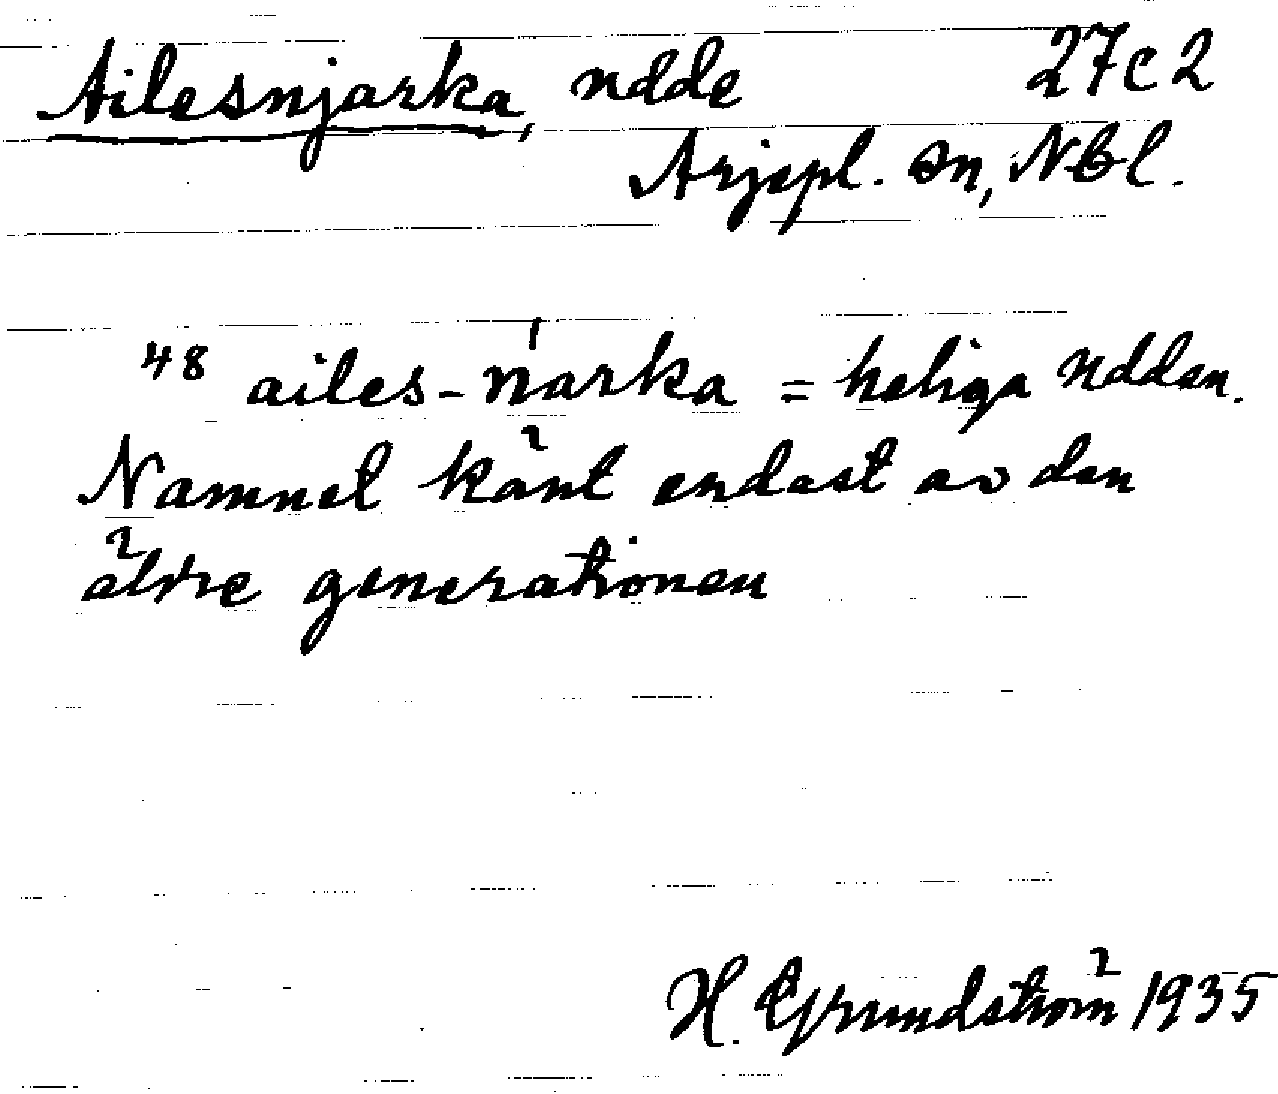 Ailesnjarka, udde 27c2
Arjepl. sn, Nbl.
48 ailes-ńarka = heliga udden.
Namnet känt endast av den
äldre generationen
H. Grundström 1935